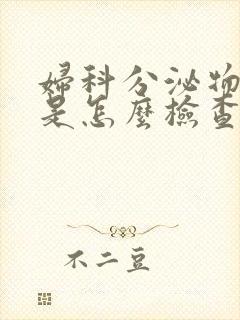 婦科分泌物
是怎麼檢查
不二豆